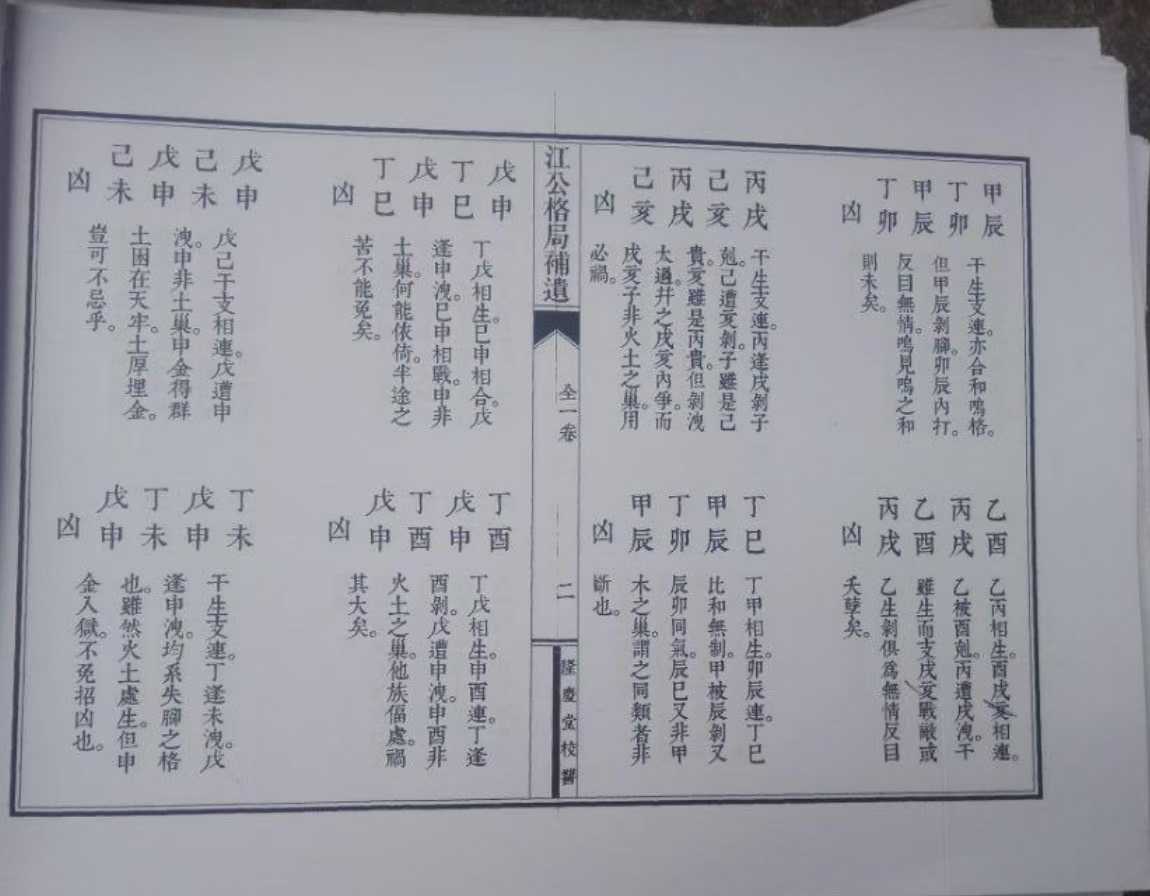 甲辰
丁卯
甲辰
丁卯
凶
干生支連。亦合和鳴格。
但甲辰剝腳。卯辰內打。
反目無情。鳴見鳴之和
則未矣。
乙酉
丙戌
乙酉
丙戌
凶
乙丙相生。酉戌亥相連。
乙被酉剋。丙遭戌洩。干
雖生而支戌亥戰敵或
乙生剝俱為無情反目
夭孽矣。
丙戌
己亥
丙戌
己亥
凶
干生支連。丙逢戌剝子
剋。己遭亥剝。子雖是己
貴。亥雖是丙貴。但剝洩
太過。幷之戌亥內爭。而
戌亥子非火土之巢。用
必禍。
丁巳
甲辰
丁卯
甲辰
凶
丁甲相生。卯辰連。丁巳
比和無制。甲被辰剝又
辰卯同氣。辰巳又非甲
木之巢。謂之同類者非
斷也。
江公格局補遺
全一卷
二
隆慶堂校
戊申
丁巳
戊申
丁巳
凶
丁戊相生。巳申相合。戊
逢申洩。巳申相戰。申非
土巢。何能依倚。半途之
苦不能免矣。
丁酉
戊申
丁酉
戊申
凶
丁戊相生。申酉連。丁逢
酉剝。戊遭申洩。申酉非
火土之巢。他族偪處。禍
其大矣。
戊申
己未
戊申
己未
凶
戊己干支相連。戊遭申
洩。申非土巢。申金得群
土困在天牢。土厚埋金。
豈可不忌乎。
丁未
戊申
丁未
戊申
凶
干生支連。丁逢未洩。戊
逢申洩。均系失腳之格
也。雖然火土處生。但申
金入獄。不免招凶也。